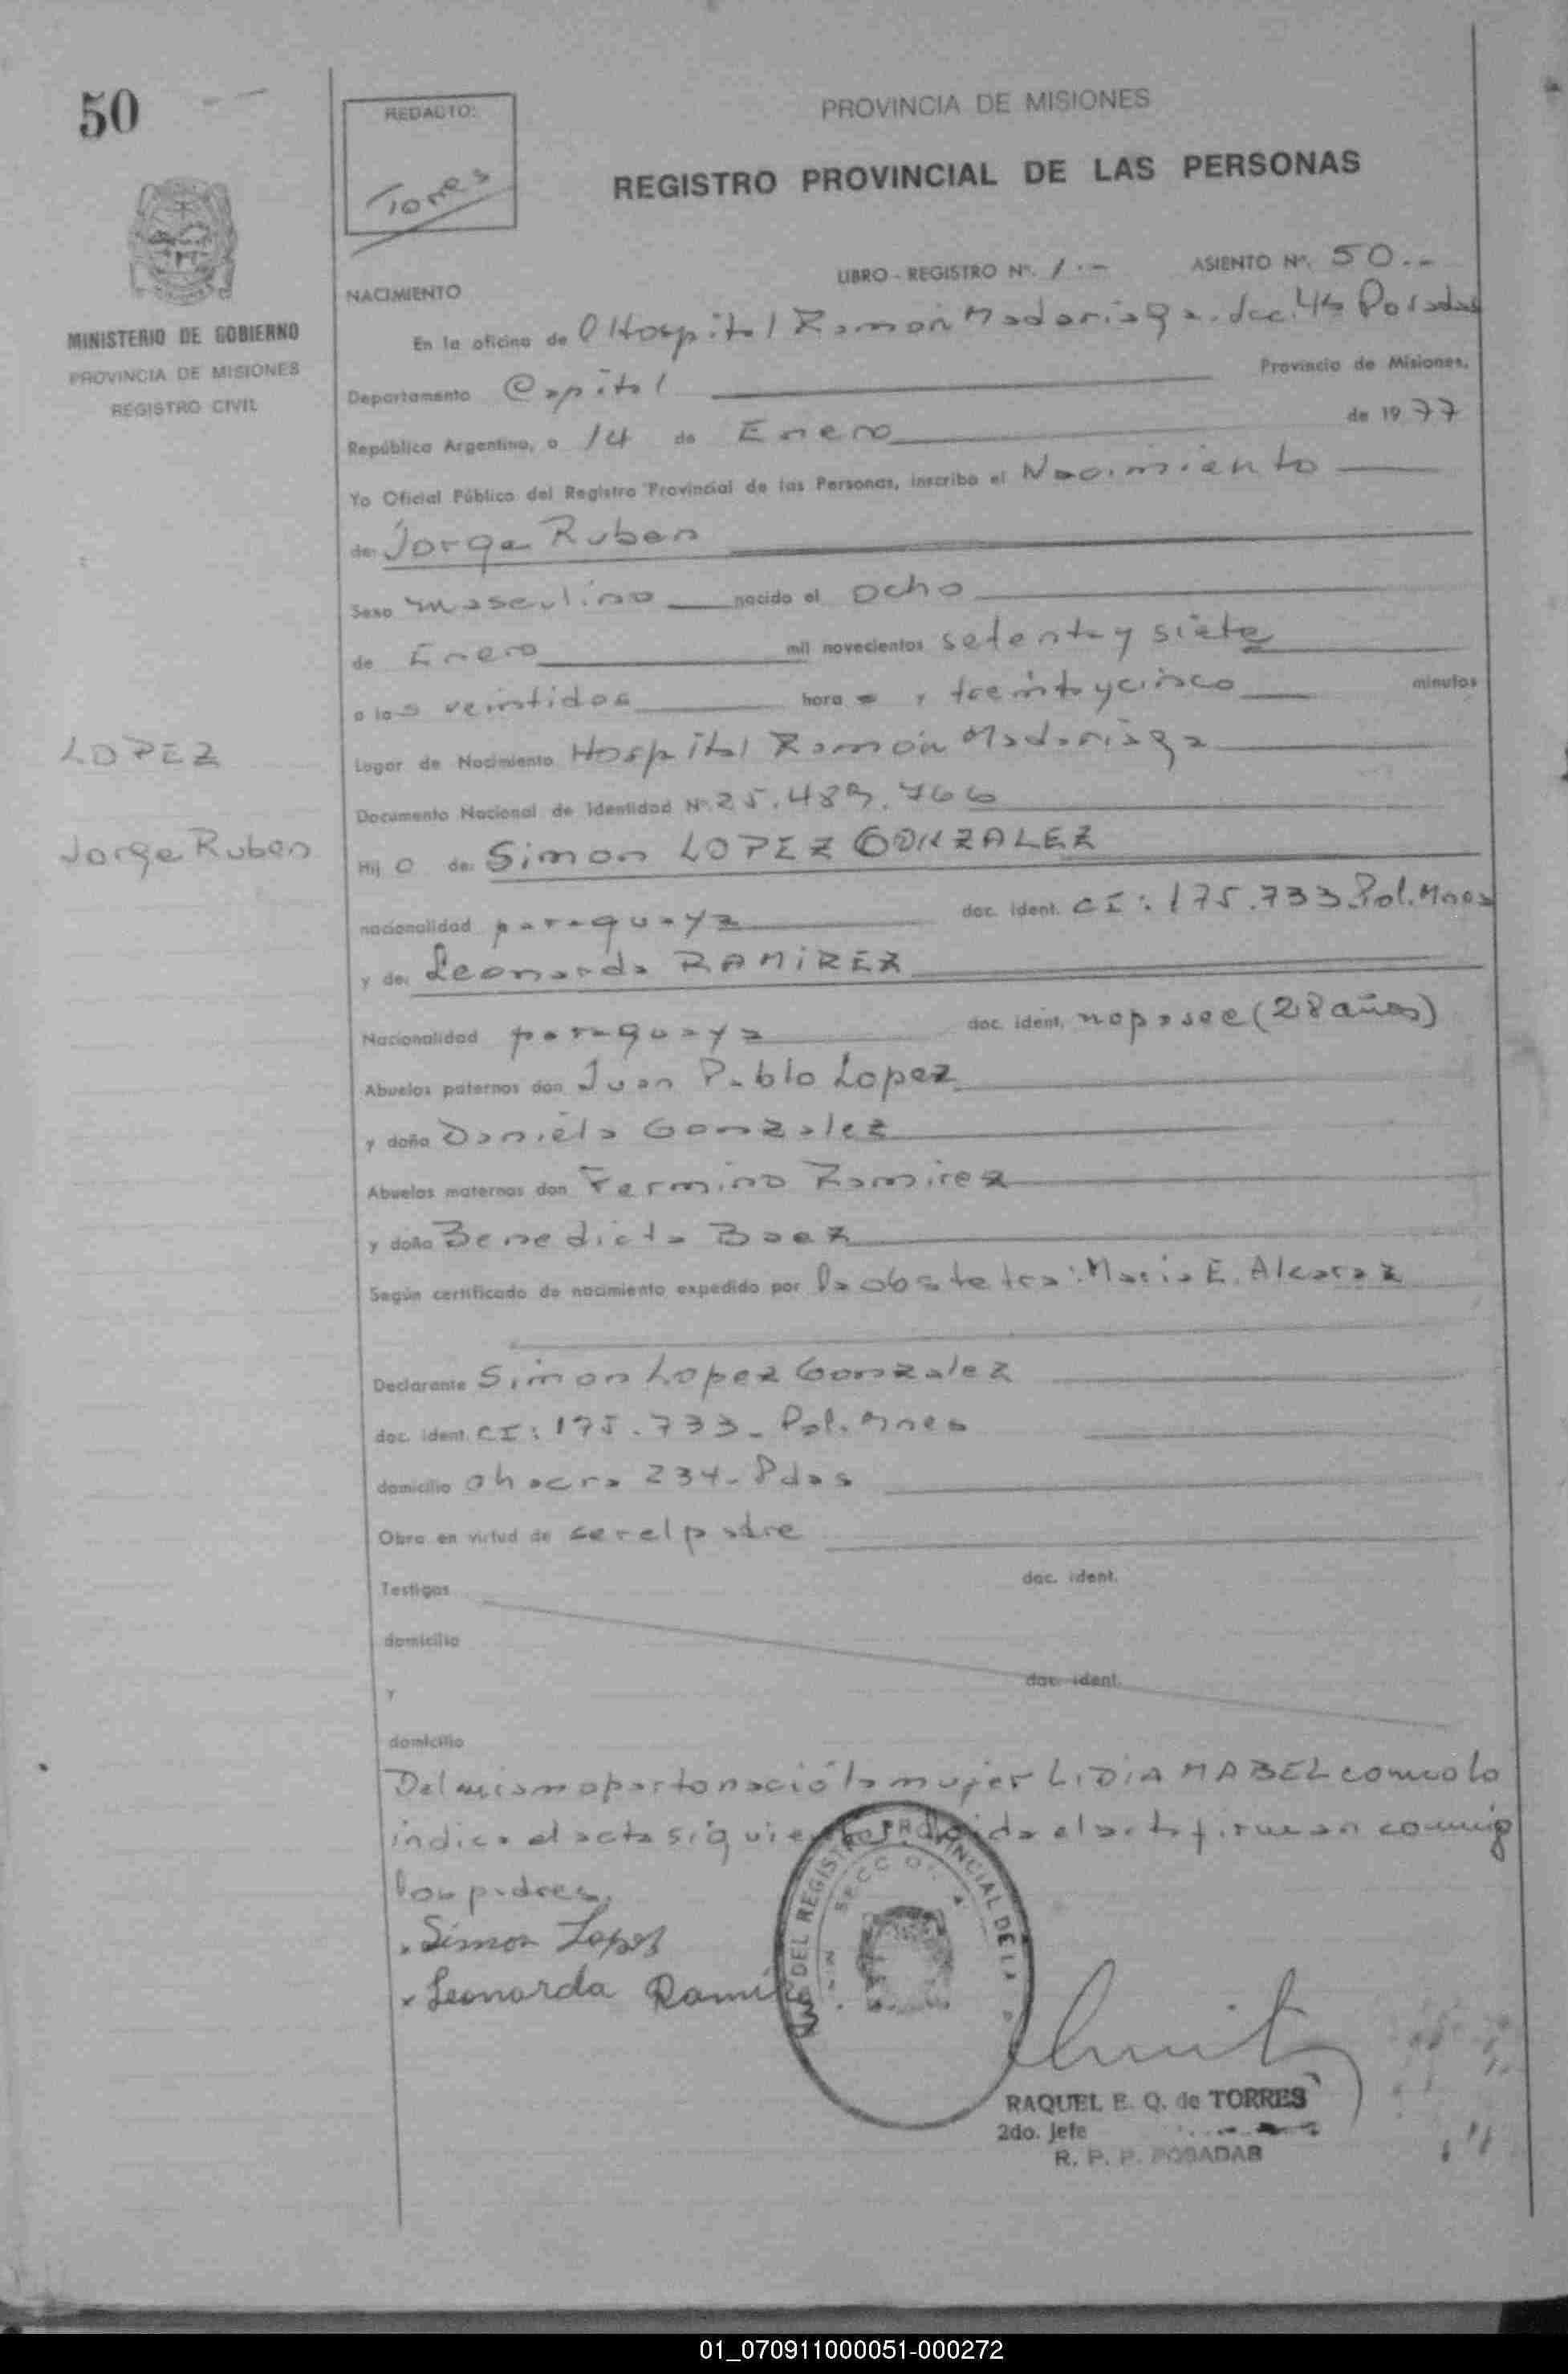 50
REDACTO:
Torres
PROVINCIA DE MISIONES
REGISTRO PROVINCIAL DE LAS PERSONAS
MINISTERIO DE GOBIERNO
PROVINCIA DE MISIONES
REGISTRO CIVIL
LIBRO - REGISTRO Nº. 1.- ASIENTO Nº. 50.-
NACIMIENTO
En la oficina de Hospital Ramón Madariaga. Secc. 4ta Posadas
Departamento Capital Provincia de Misiones,
República Argentina, a 14 de Enero de 1977
Yo Oficial Público del Registro Provincial de las Personas, inscribo el Nacimiento
de: Jorge Ruben
Sexo masculino nacido el ocho
de Enero mil novecientos setenta y siete
a las veintidos hora s y treinta y cinco minutos
Lugar de Nacimiento Hospital Ramón Madariaga
LOPEZ
Jorge Ruben
Documento Nacional de Identidad Nº 25.489.766
Hij o de: Simon LOPEZ GONZALEZ
nacionalidad paraguaya doc. ident. CI: 175.733.Pol.Mnes
y de: Leonarda RAMIREZ
Nacionalidad paraguaya doc. ident. no posee (28 años)
Abuelos paternos don Juan Pablo Lopez
y doña Daniela Gonzalez
Abuelos maternos don Fermino Ramirez
y doña Benedicta Baez
Según certificado de nacimiento expedido por la obstetra: Maria E. Alcaraz
Declarante Simon Lopez Gonzalez
doc. ident. CI: 175.733- Pol. Mnes
domicilio chacra 234- Pdas
Obra en virtud de ser el padre
Testigos doc. ident.
domicilio
y doc. ident.
domicilio
Del mismo parto nació la mujer LIDIA MABEL como lo
indica el acta siguiente. Leida el acta firman conmigo
los padres.
Simon Lopez
Leonarda Rami
DEL REGISTRO PROVINCIAL DE LA
RAQUEL E. Q. de TORRES
2do. Jefe
R. P. P. POSADAS
01_070911000051-000272